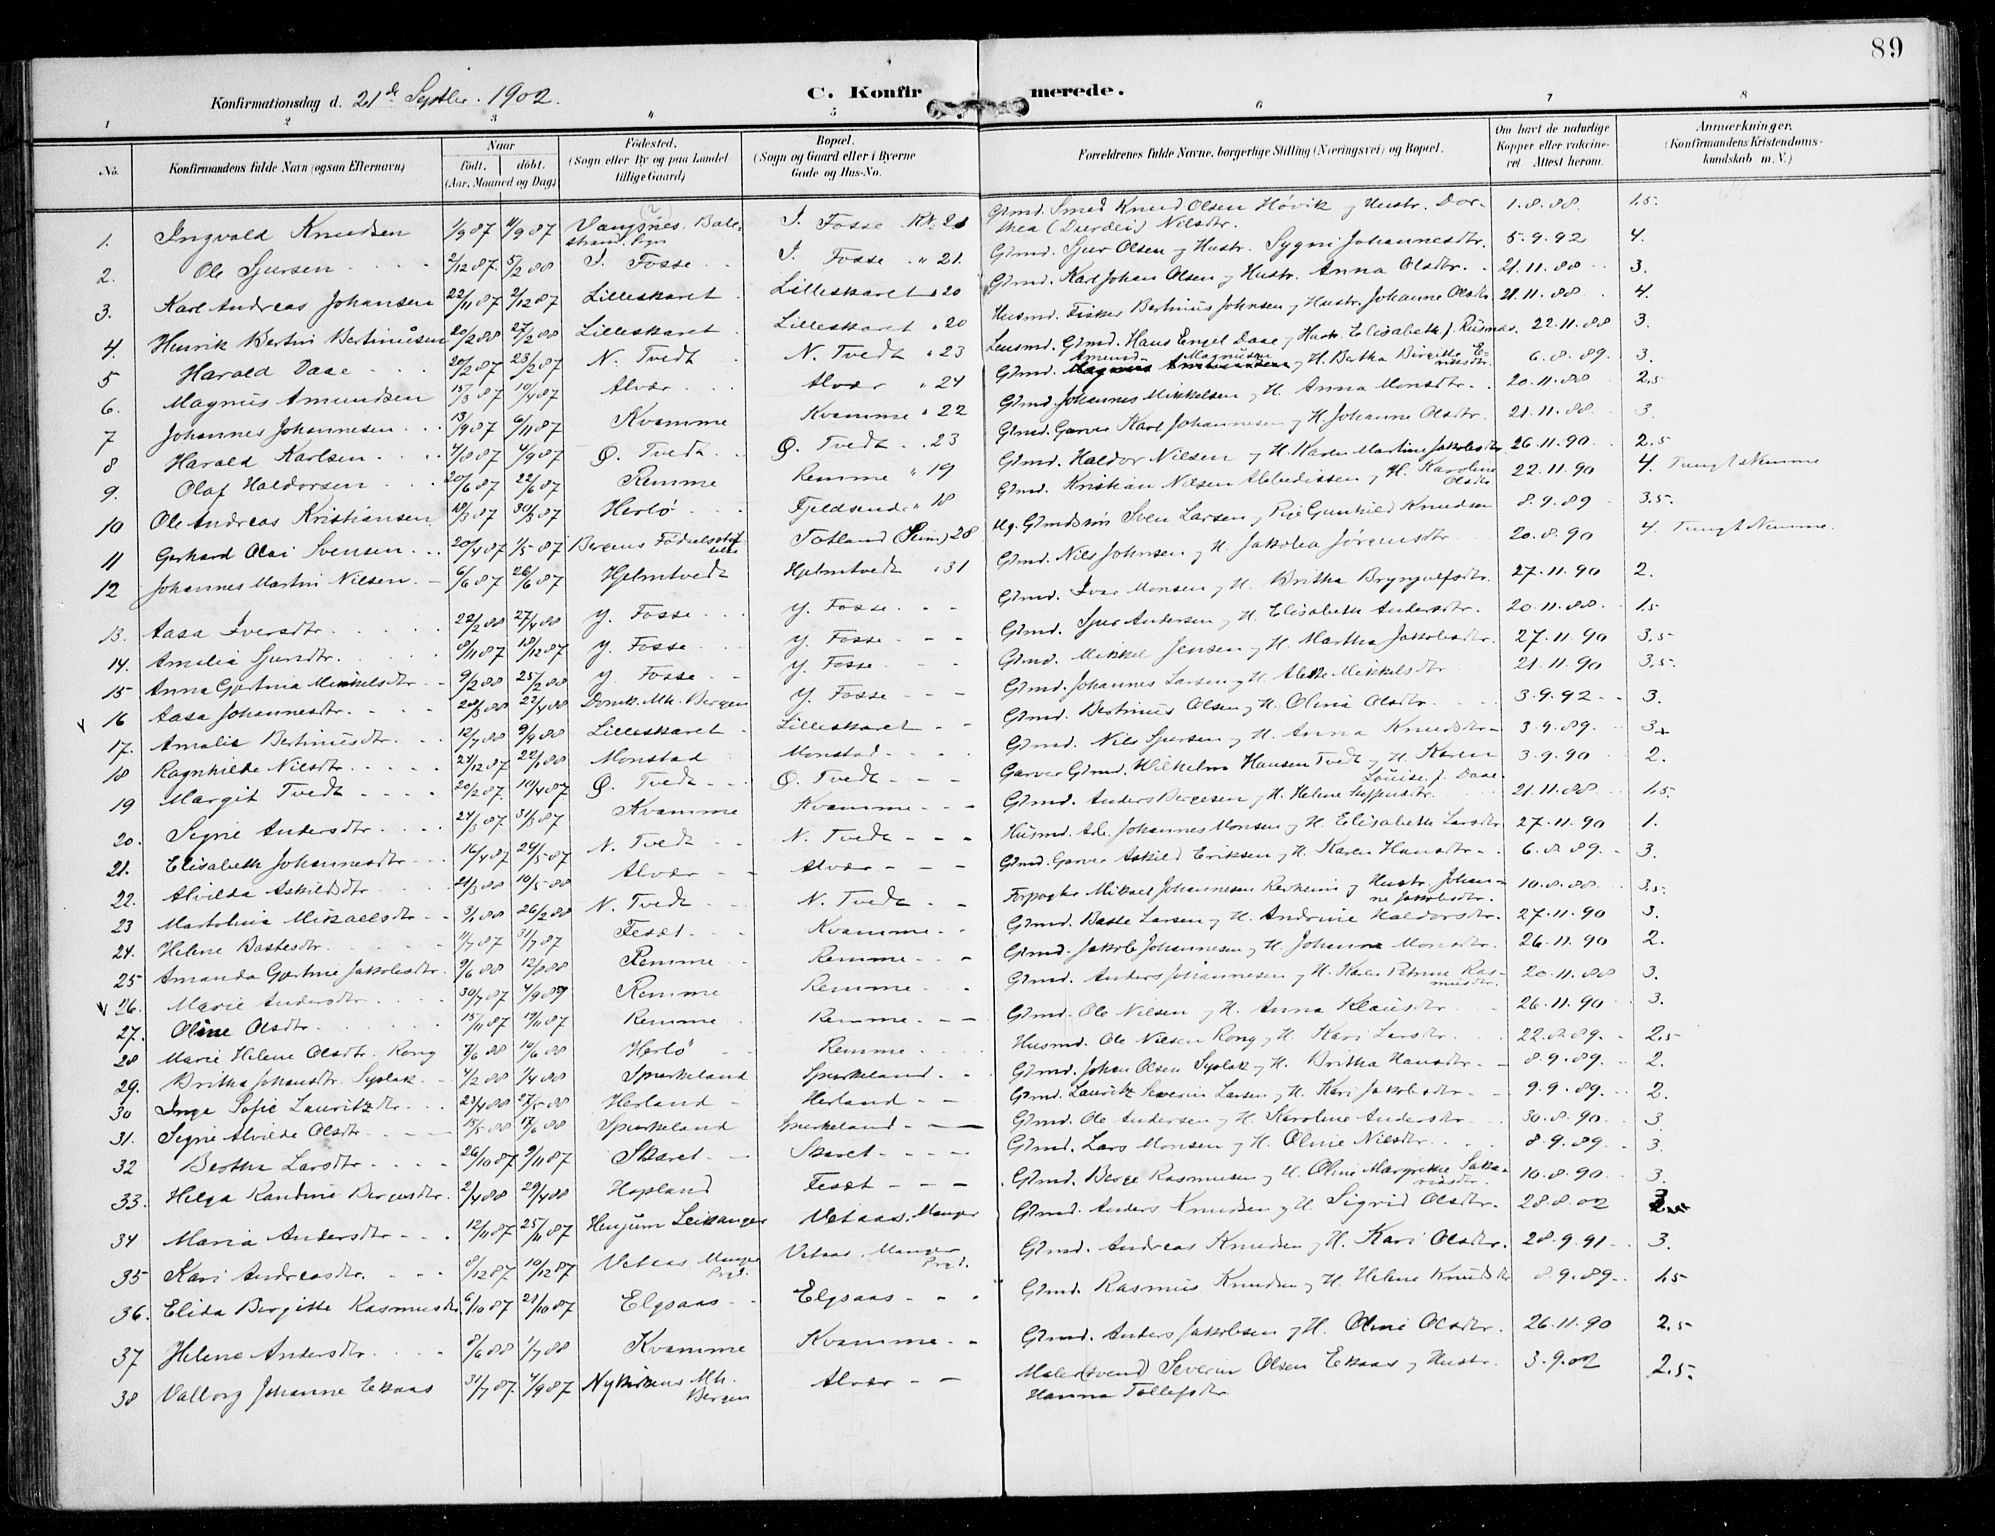 89
Konfirmationsdag d. 21de Septbr. 1902.
C. Konfirmerede.
1 2 3 4 5 6 7 8
No.
Konfirmandens fulde Navn (ogsaa Efternavn)
Naar født. døbt. (Aar, Maaned og Dag)
Fødested. (Sogn eller By og paa Landet tillige Gaard)
Bopæl. (Sogn og Gaard eller i Byerne Gade og Hus-No.
Forældrenes fulde Navne, borgerlige Stilling (Næringsvei) og Bopæl.
Om havt de naturlige Kopper eller vakcineret. Attest herom.
Anmærkninger. (Konfirmandens Kristendomskundskab m. V.)
1. Ingvald Knudsen 1/9 87 11/9 87 Vangsnes, Balestrand Sogn I. Fosse Gmd. Smed Knud Olsen Høvik og Hustr. Dorthea (Durdei) Nilsdtr. 1.8.88. 1.5.
2. Ole Sjursen 2/12 87. 5/2 88 I. Fosse I. Fosse " 21. Gmd. Sjur Olsen og Hustr. Sygni Johannesdtr. 5.9.92 4.
3. Karl Andreas Johansen 22/11 87 2/12 87 Lilleskaret Lilleskaret " 20 Gmd. Karl Johan Olsen og Hustr. Anna Olsdtr. 21.11.88 3.
4. Henrik Bertin Bertinusen 20/2 88 27/2 88 Lilleskaret Lilleskaret " 20 Husmd. Fisker Bertinus Johnsen og Hustr. Johanne Olsdtr. 21.11.88 4.
5 Harald Daae 20/2 87 23/2 87 N. Tvedt N. Tvedt " 23 Lensmd. Gmd. Hans Engel Daae og Hustr. Elisabeth f. Rusnes. 22.11.88 3.
6. Magnus Amundsen 15/3 87 10/4 87 Alvær Alvær " 24 Gmd. Amund Magnusen og H. Bertha Birgitte Eriksdtr. 6.8.89. 3.
7 Johannes Johannesen 13/9 87 6/11 87 Kvamme Kvamme " 22 Gmd. Johannes Mikkelsen og H. Anna Monsdtr. 20.11.88 2.5
8 Harald Karlsen 4/8 87 4/9 87 Ø. Tvedt Ø. Tvedt " 23 Gmd. Garver Karl Johannesen og H. Johanne Olsdtr. 21.11.88. 3.
9. Olaf Haldorsen 20/6 87 22/6 87 Remme Remme " 19 Gmd. Haldor Nilsen og H. Karen Martine Jakobsdtr 26.11.90 2.5
10 Ole Andreas Kristiansen 18/3 87 30/3 87 Herlø Fjeldsende " 18 Gmd. Kristian Nilsen Abbedissen og H. Karoline Olsdtr 22.11.90 4. Tungt Nemme
11 Gerhard Olai Svensen 20/4 87 1/5 87 Bergens Fødselsstiftelse Totland (Seim) 28 Ug. Gmdssøn Sven Larsen og Pige Gunhild Knudsen 8.9.89 3.5.
12 Johannes Martin Nilsen 6/6 87 26/6 87 Hjelmtvedt Hjelmtvedt " 31 Gmd. Nils Johnsen og H. Jakobia Jørgensdtr 20.8.90 4. Tungt Nemme.
13. Aasa Iversdtr. 22/2 88 27/4 88 Y. Fosse Y. Fosse Gmd. Ivar Monsen og H. Britha Brynjulfsdtr. 27.11.90 2.
14. Amalia Sjursdtr. 8/11 87 18/12 87 Y. Fosse Y. Fosse Gmd. Sjur Andersen og H. Elisabeth Andersdtr. 20.11.88. 1.5
15 Anna Gjertina Mikkelsdtr 9/2 88 25/2 88 Y. Fosse Y. Fosse Gmd. Mikkel Jensen og H. Martha Jakobsdtr. 27.11.90 3.5
16 Aasa Johannesdtr. 22/4 88 Domk. Mh. Bergen Y. Fosse Gmd. Johannes Larsen og H. Alette Mikkelsdtr 21.11.90 3.5.
17. Amalie Bertinusdtr. 12/7 88 9/9 88 Lilleskaret Lilleskaret Gmd. Bertinus Olsen og H. Olina Olsdtr. 3.9.92 3.
18 Ragnhilda Nilsdtr. 24/12 87 22/1 88 Monstad Monstad Gmd. Nils Sjursen og H. Anna Knudsdtr 3.9.89. 3.
19 Margit Tvedt 20/2 87. 10/4 87 Ø. Tvedt Ø. Tvedt Garver Gmd. Wilhelm Hansen Tvedt og H. Karen Louise f. Daae 3.9.90 2.
20. Signe Andersdtr. 24/3 87 31/3 87 Kvamme Kvamme Gmd. Anders Bergesen og H. Helene 21.11.88 1.5.
21. Elisabeth Johannesdtr 16/4 87 29/5 87 N. Tvedt N. Tvedt Husmd. Arb. Johannes Monsen og H. Elisabeth Larsdtr 27.11.90 1.
22. Alvilda Askildsdtr. 21/3 88 10/5 88 Alvær Alvær Gmd. Garver Askild Eriksen og H. Karen Hansdtr 6.8.89. 3.
23 Mikaelsdtr 3/1 88 26/2 88 N. Tvedt N. Tvedt Forpagter Mikael Johannesen og Hustr. Johanne Jakobsdtr. 10.8.88. 3.5.
24. Helene Bastesdtr. 11/7 87 31/7 87 Fesæt Kvamme Gmd. Baste Larsen og H. Andrine Haldorsdtr. 27.11.90 3.
25 Amanda Gjertine Jakobsdtr. 9/6 88 12/8 88 Remme Remme Gmd. Jakob Johannesen og H. Johanne Monsdtr. 26.11.90 2.
26. Marie Andersdtr 30/7 87 4/9 87 Remme Remme Gmd. Anders Johannesen og H. Karen Petrine Rasmusdtr. 20.11.88 3.
27. Oline Olsdtr. 15/11 87 19/11 87 Remme Remme Gmd. Ole Nilsen og H. Anna Klausdtr 26.11.90 3.
28 Marie Helene Olsdtr. Rong 7/6 88 10/6 88 Herlø Remme Husmd. Ole Nilsen Rong og H. Kari Larsdtr. 22.8.89. 2.5
29. Britha Johansdtr. Syslak 4/2 88 1/4 88 Spurkeland Spurkeland Gmd. Johan Olsen Syslak og H. Britha Hansdtr 8.9.89. 2.
30 Inga Sofie Lauritzdtr. 23/4 88 27/5 88 Herland Herland Gmd. Lauritz Severin Larsen og H. Kari Jakobsdtr 9.9.89. 2.
31. Signe Alvilde Olsdtr 15/5 88 17/6 88 Spurkeland Spurkeland Gmd. Ole Andersen og H. Karoline Andersdtr 30.8.90. 3.
32 Bertha Larsdtr. 26/10 87 9/11 87 Skaret Skaret Gmd. Lars Monsen og H. Oline Nilsdtr. 8.9.89. 3.
33. Helga Randine Bergesdtr. 2/4 88 29/4 88 Hopland Fesæt Gmd. Berge Rasmusen og H. Oline Margrethe 10.8.90. 3.
34 Maria Andersdtr 12/11 87 25/11 87 Henjum Leikanger Vetaas, Manger Gmd. Anders Knudsen og H. Sigrid Olsdtr. 28.8.02
35 Kari Andreasdtr. 8/12 87 10/12 87 Vetaas Manger Præd. Vetaas, Manger Præd. Gmd. Andreas Knudsen og H. Kari Olsdtr. 28.9.91. 3.
36. Elida Bergitte Rasmusdtr 6/10 87 21/10 87 Elgsaas Elgsaas Gmd. Rasmus Knudsen og H. Helene Knudsdtr 8.9.89. 1.5
37 Helene Andersdtr. 8/6 88 1/7 88 Kvamme Kvamme Gmd. Anders Jakobsen og H. Oline Olsdtr. 26.11.90 2.5
38 Valborg Johanne Ekaas 31/7 87. 4/9 87 Nykirkens Mh. Bergen Alvær Maler(svend) Severin Olsen Ekaas og Hustr. Hanna Tollefsdtr 3.9.02 2.5.